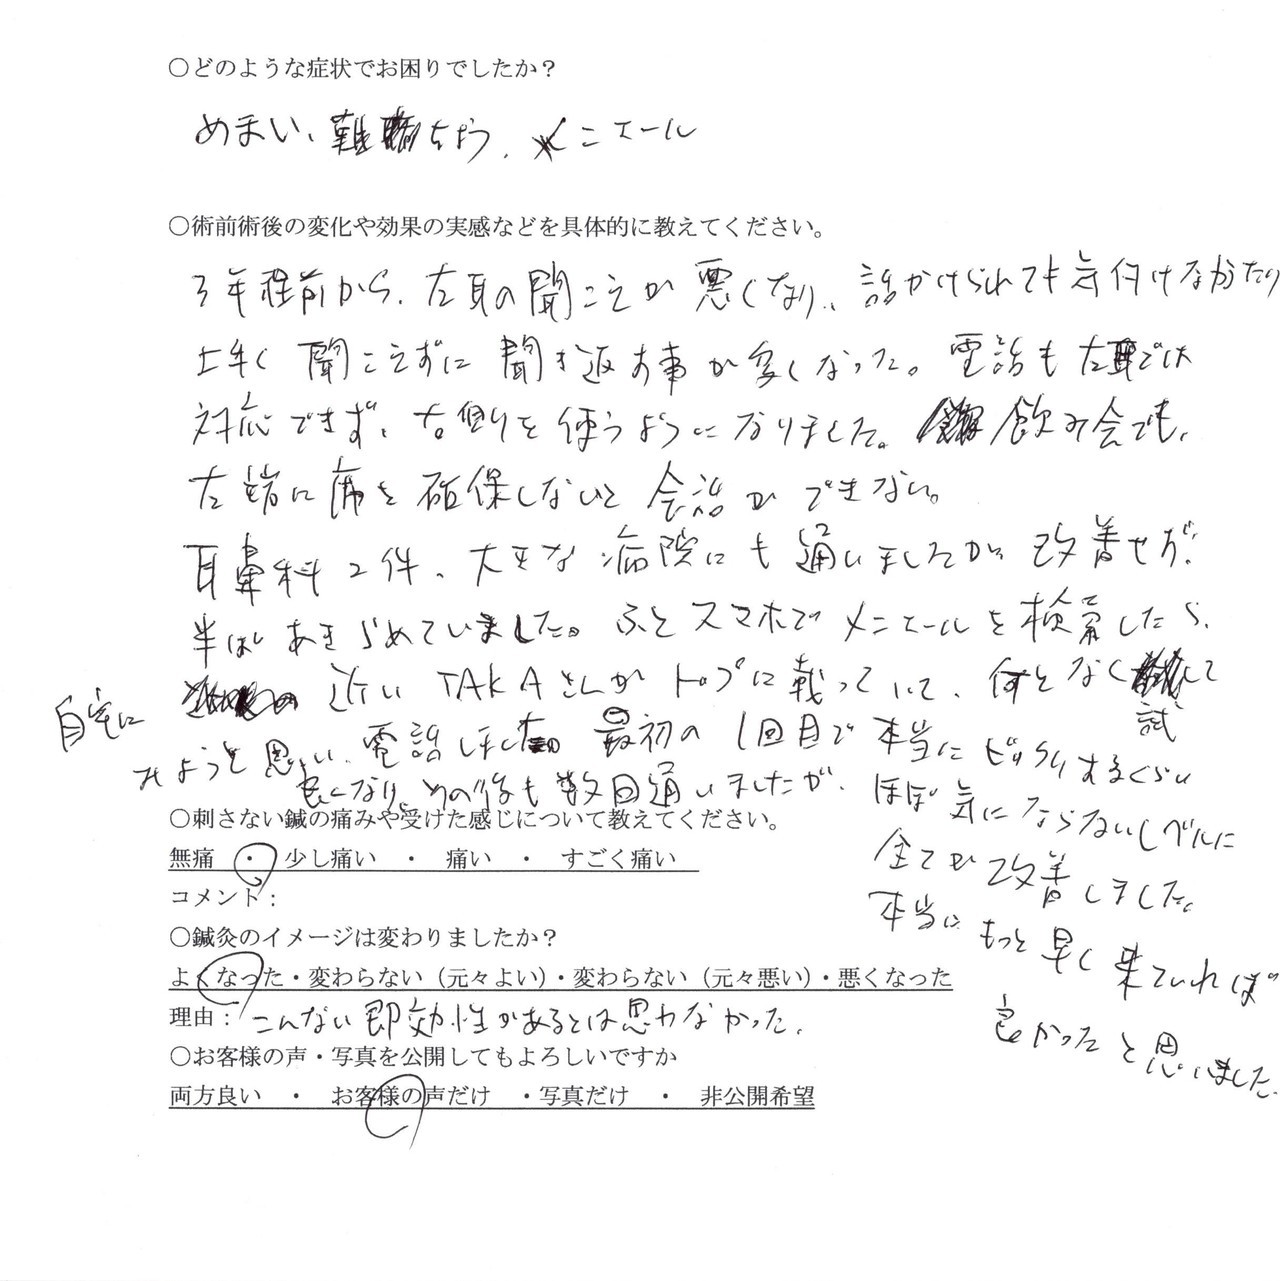 ○どのような症状でお困りでしたか？
めまい、難ちょう、メニエール
○術前術後の変化や効果の実感などを具体的に教えてください。
3年程前から、左耳の聞こえが悪くなり、話かけられても気付けなかたり
上手く聞こえずに聞き返す事が多くなった。電話も左耳では
対応できず、右側を使うようになりました。飲み会でも、
左端に席を確保しないと会話ができない。
耳鼻科2件、大きな病院にも通いましたが改善せず、
半ばあきらめていました。ふとスマホでメニエールを検索したら、
自宅に近いTAKAさんがトップに載っていて、何となく試して
みようと思い、電話しました。最初の1回目で本当にビックリするくらい
良くなり、その後も数回通いましたが、ほぼ気にならないレベルに
全てが改善しました。
本当に、もっと早く来ていれば
良かったと思いました。
○刺さない鍼の痛みや受けた感じについて教えてください。
無痛　・　少し痛い　・　痛い　・　すごく痛い
コメント：
○鍼灸のイメージは変わりましたか？
よくなった・変わらない（元々よい）・変わらない（元々悪い）・悪くなった
理由：こんない即効性があるとは思わなかった。
○お客様の声・写真を公開してもよろしいですか
両方良い　・　お客様の声だけ　・写真だけ　・　非公開希望